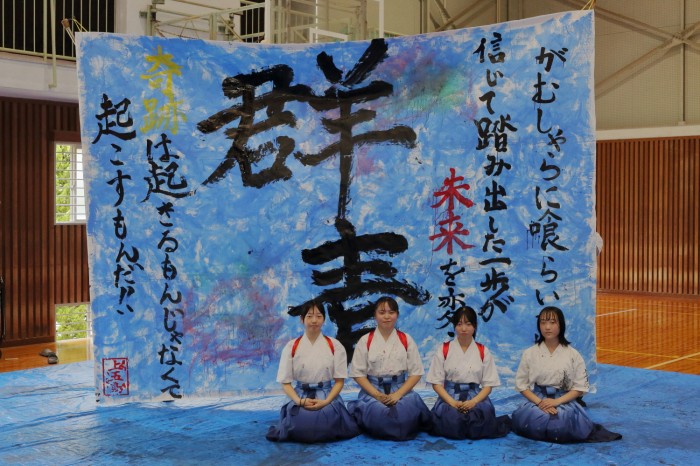 がむしゃらに喰らい
信じて踏み出した一歩が
未来を変
群青
奇跡は起きるもんじゃなくて
起こすもんだ!!